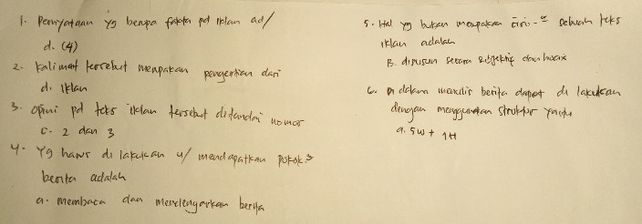 1. Pernyataan yg berupa fakta pd iklan ad/
d. (4)
2. Kalimat tersebut merupakan pengertian dari
d. Iklan
3. Opini pd teks iklan tersebut ditandai nomor
c. 2 dan 3
4. Yg harus di lakukan u/ mendapatkan pokok²
berita adalah
a. membaca dan mendengarkan berita
5. Hal yg bukan merupakan ciri-² sebuah teks
iklan adalah
B. disusun secara subjektif dan hoax
6. Di dalam menulis berita dapat di lakukan
dengan menggunakan struktur yaitu
a. 5W + 1H